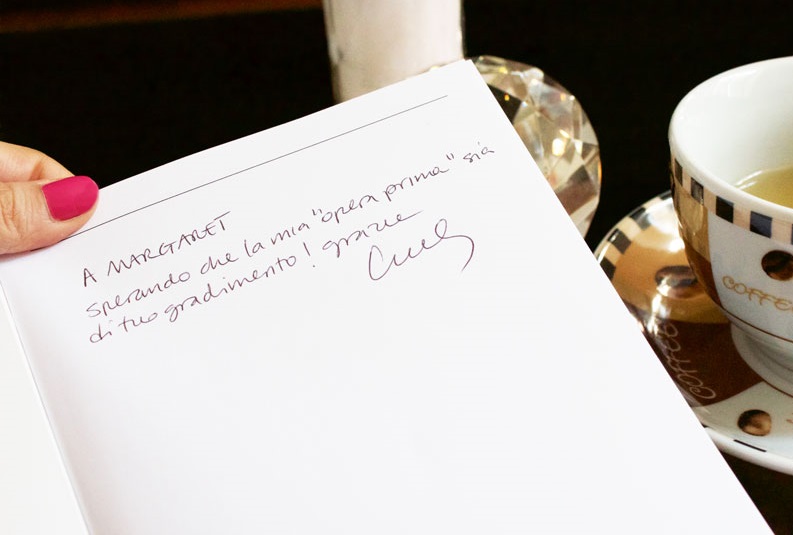 A MARGARET
sperando che la mia "opera prima" sia
di tuo gradimento! grazie
COFFEE
COFFEE